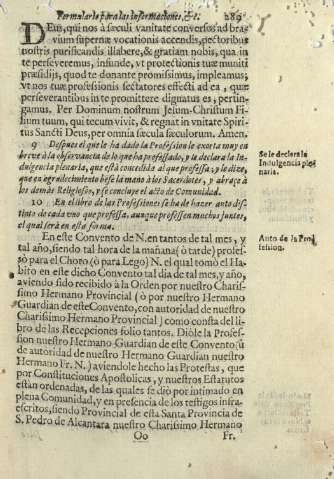 Formulario para las informaciones, &c. 289
DEus, qui nos à sæculi vanitate conversos ad bra-
vium supernæ vocationis accendis, pectoribus
nostris purificandis illabere, & gratiam nobis, qua in
te perseveremus, infunde, vt protectionis tuæ muniti
præsidijs, quod te donante promissimus, impleamus,
vt nos tuæ professionis sectatores effecti ad ea, quæ
perseverantibus in te promittere dignatus es, pertin-
gamus. Per Dominum nostrum Jesum-Christum Fi-
lium tuum, qui tecum vivit, & regnat in vnitate Spiri-
tus Sancti Deus, per omnia sæcula sæculorum. Amen.
9 Despues el que le ha dado la Profession le exorta muy en
breve à la observancia de lo que ha professado, y le declara la In-
dulgencia plenaria, que està concedida al que professa, y le dize,
que en agradecimiento bese la mano à los Sacerdotes, y abraçe à
los demàs Religiosos, y se concluye el acto de Comunidad.
Se le declara la
Indulgencia ple
naria.
10 En el libro de las Professiones se ha de hazer auto dis-
tinto de cada vno que professa, aunque professen muchos juntos,
el qual serà en esta forma.
En este Convento de N. en tantos de tal mes, y
tal año, siendo tal hora de la mañana (ò tarde) profes-
sò para el Choro (ò para Lego) N. el qual tomò el Ha-
bito en este dicho Convento tal dia de tal mes, y año,
aviendo sido recibido à la Orden por nuestro Charis-
simo Hermano Provincial (ò por nuestro Hermano
Guardian de este Convento, con autoridad de nuestro
Charissimo Hermano Provincial) como consta del li-
bro de las Recepciones folio tantos. Diòle la Profes-
sion nuestro Hermano Guardian de este Convento (ù
de autoridad de nuestro Hermano Guardian nuestro
Hermano Fr. N.) aviendole hecho las Protestas, que
por Constituciones Apostolicas, y nuestros Estatutos
estàn ordenadas, de las quales se diò por intimado en
plena Comunidad, y en presencia de los testigos infra-
escritos, siendo Provincial de esta Santa Provincia de
S. Pedro de Alcantara nuestro Charissimo Hermano
Auto de la Prof
fession.
Oo Fr.